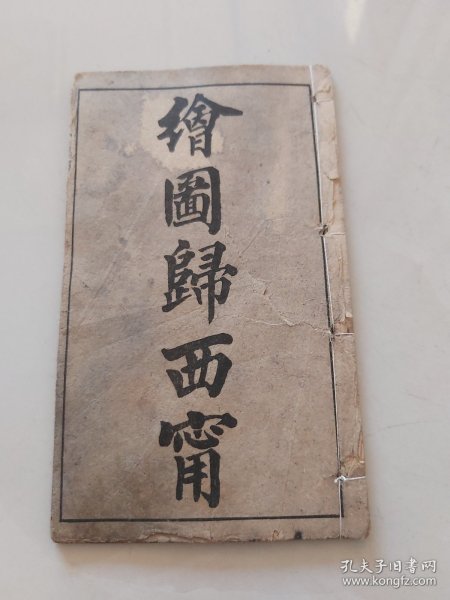 繪圖歸西甯
孔夫子旧书网
www.kongfz.com